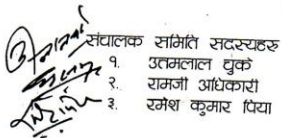 संचालक समिति सदस्यहरु
१. उतमलाल चुंके
२. रामजी अधिकारी
३. रमेश कुमार पिया